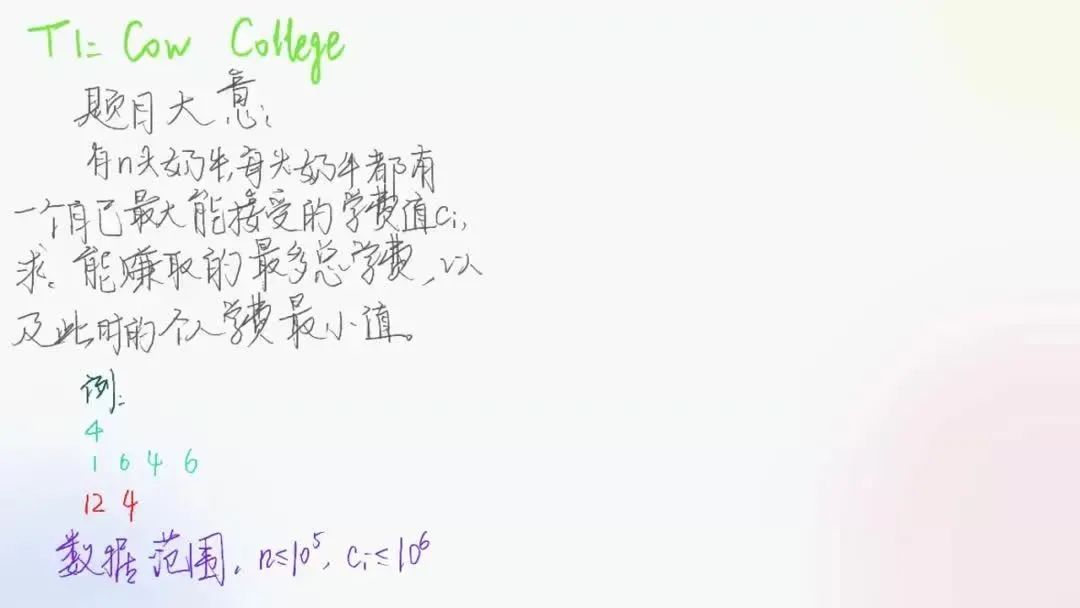 T1: Cow College
题目大意:
有n头奶牛,每头奶牛都有
一个自己最大能接受的学费值ci,
求。能赚取的最多总学费,以
及此时的个人学费最小值。
例:
4
1 6 4 6
12 4
数据范围. n≤10⁵, ci≤10⁶